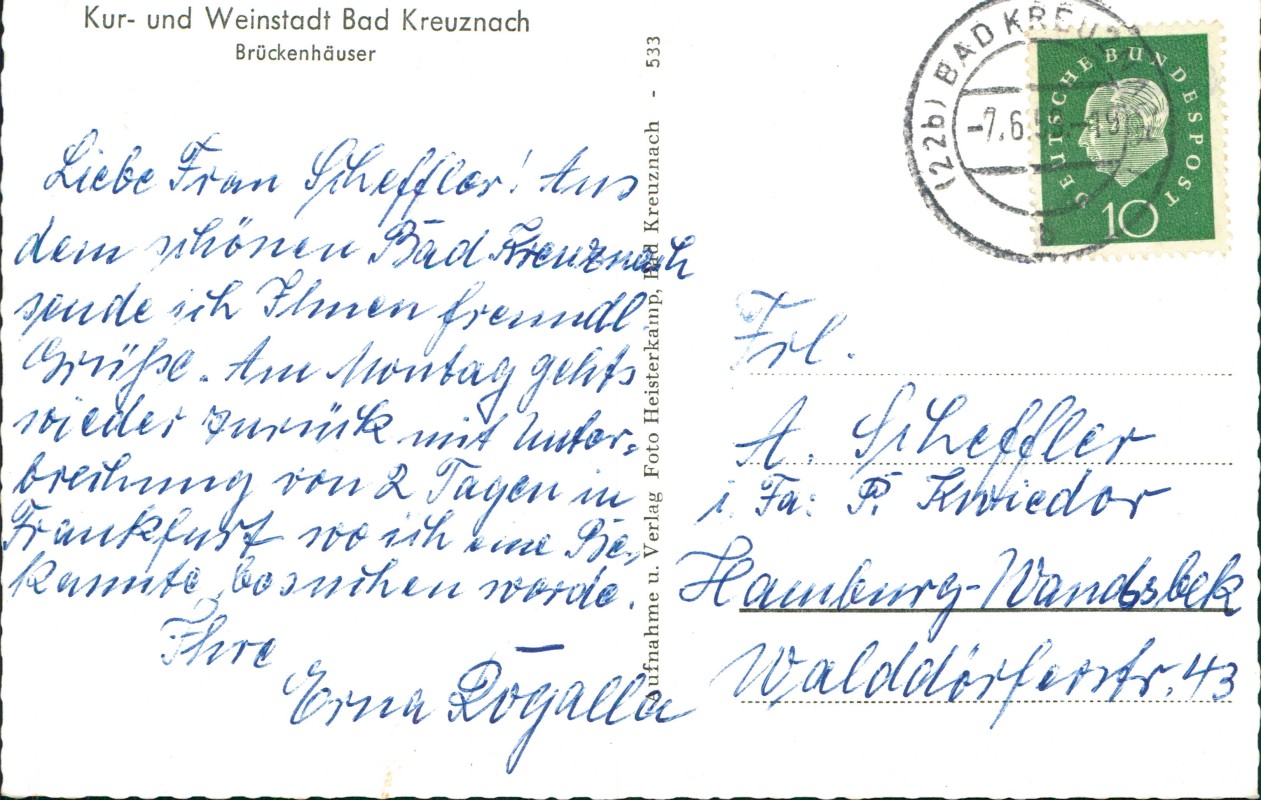 Kur- und Weinstadt Bad Kreuznach
Brückenhäuser
Liebe Frau Scheffler! Aus
dem schönen Bad Kreuznach
sende ich Ihnen freundl.
Grüße. Am Montag gehts
wieder zurück mit Unter-
brechung von 2 Tagen in
Frankfurt wo ich eine Be-
kannte besuchen werde.
Ihre
Erna Rogalla
Aufnahme u. Verlag Foto Heisterkamp, Bad Kreuznach - 533
(22b) BAD KREUZ
-7.6.5
DEUTSCHE BUNDESPOST
10
Frl.
A. Scheffler
i. Fa: P. Kwiedor
Hamburg-Wandsbek
Walddörferstr. 43